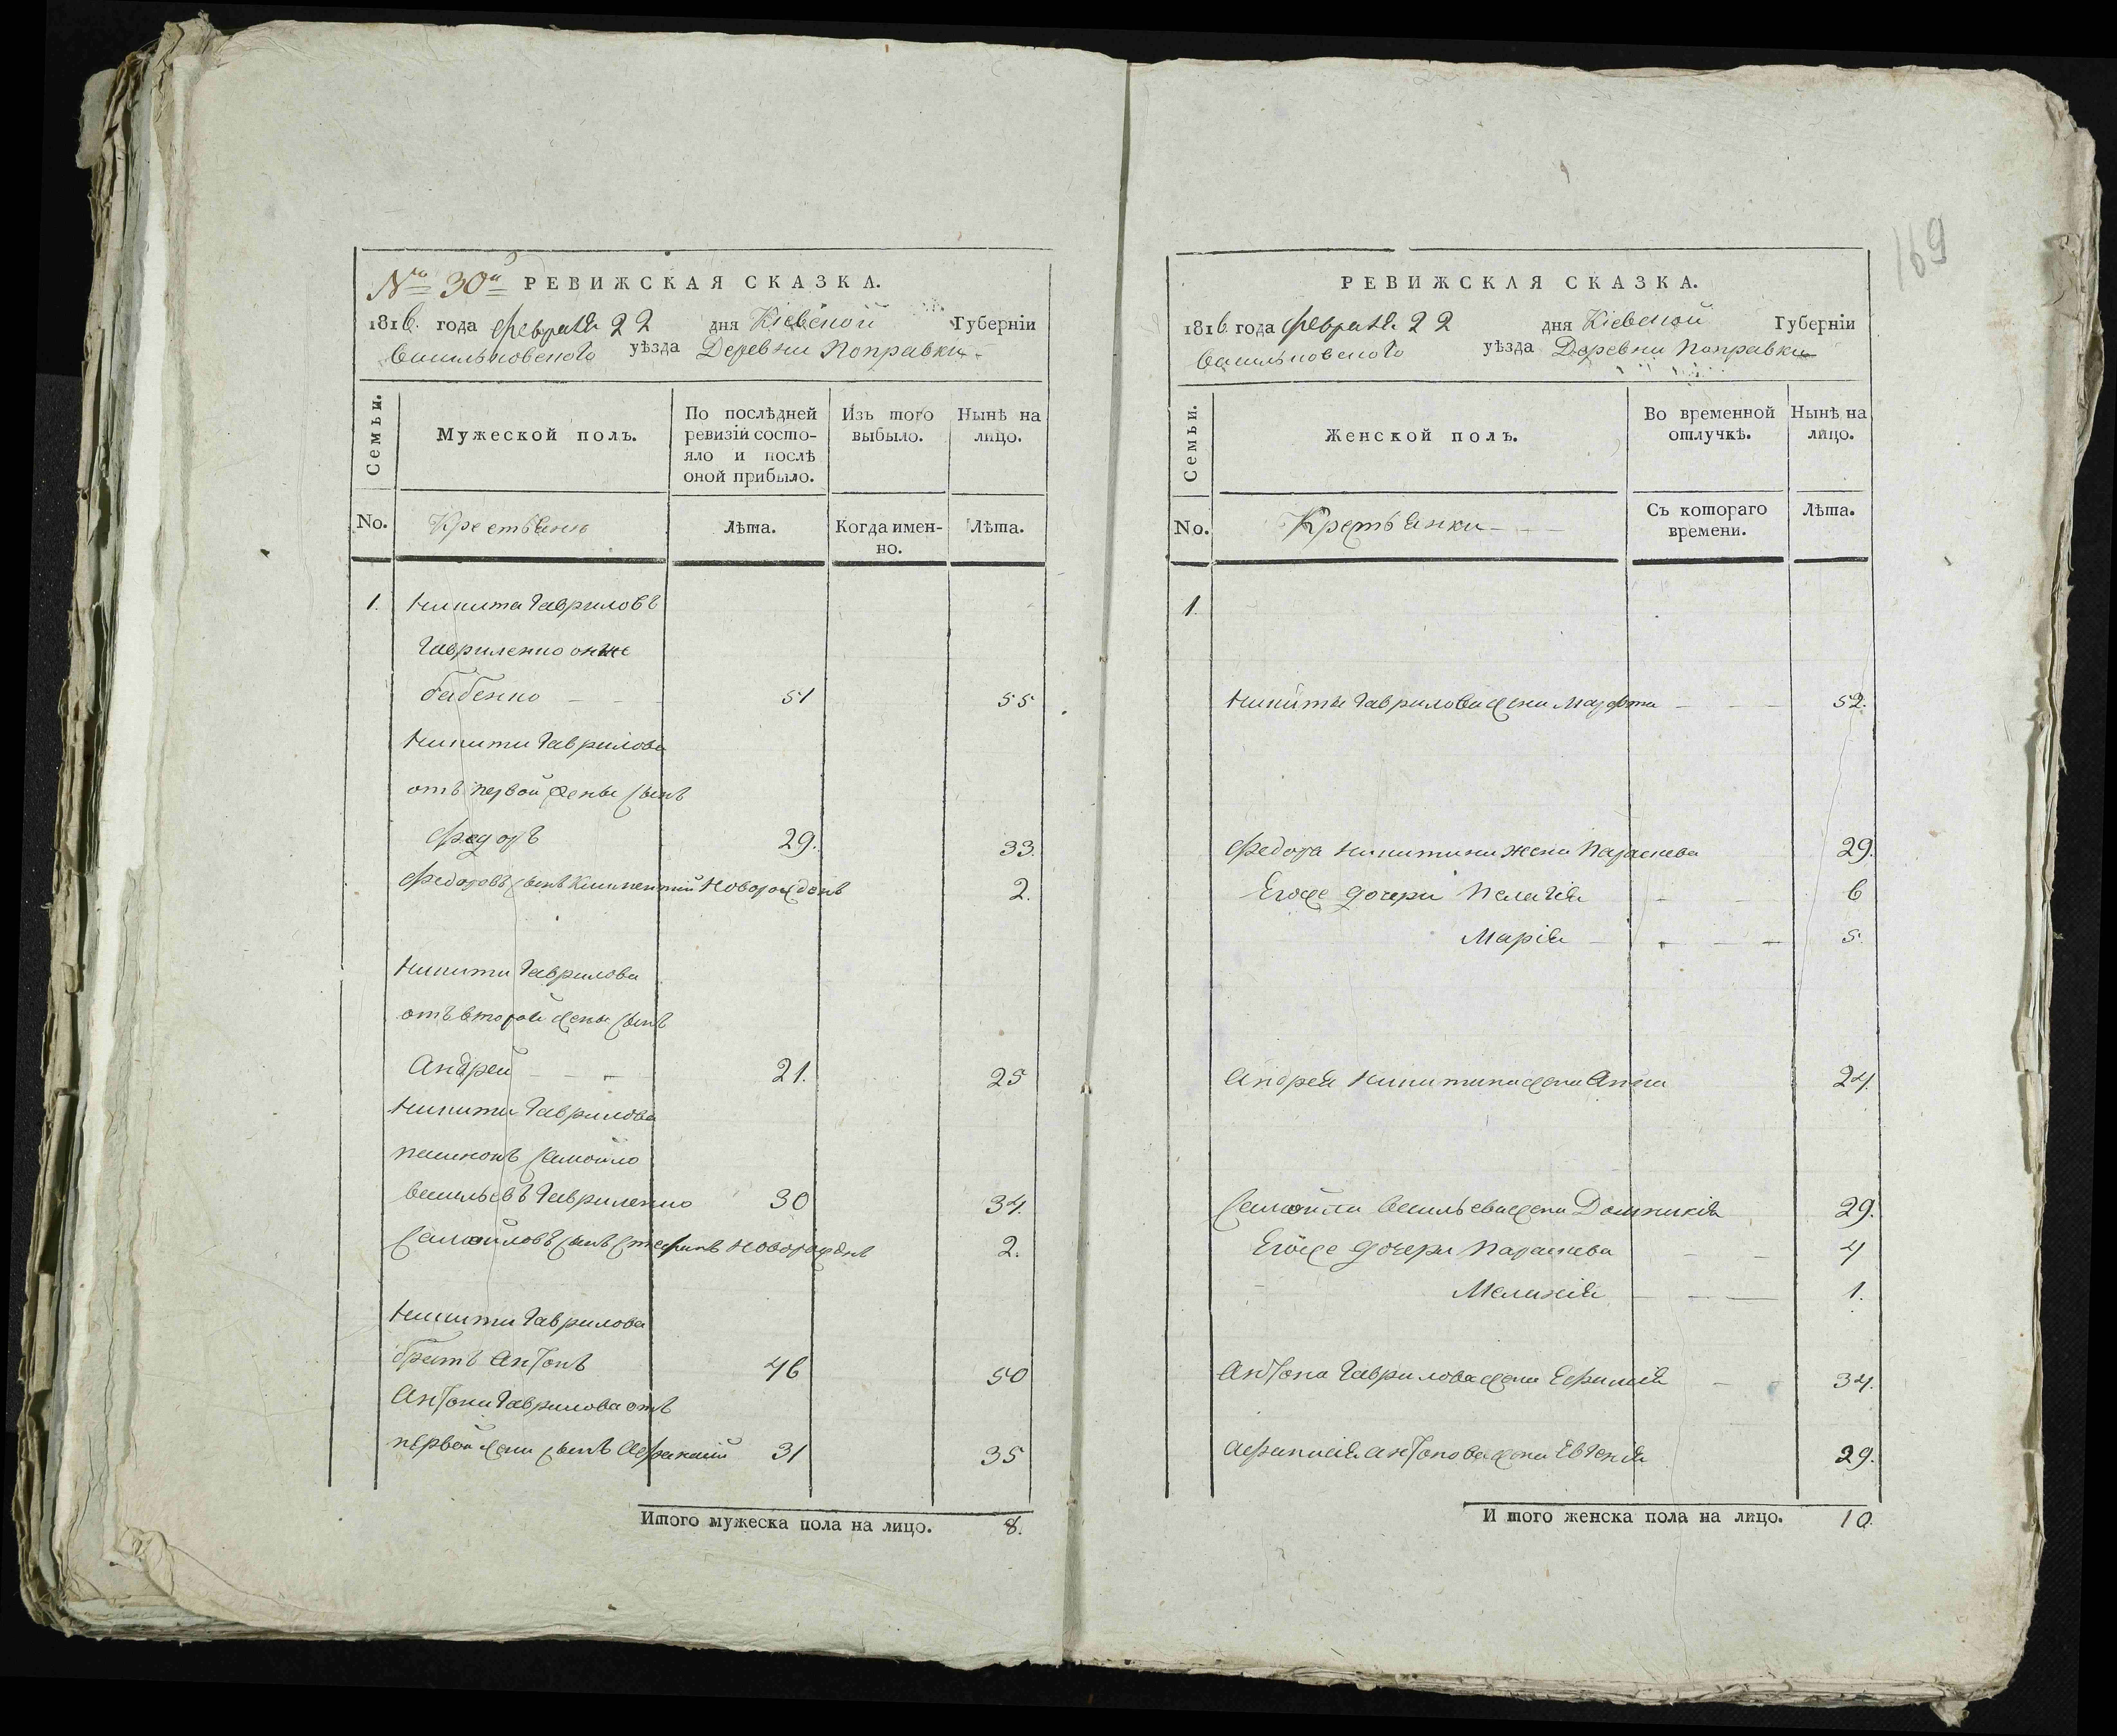 № 30й РЕВИЖСКАЯ СКАЗКА.
1816. года Февраля 22 дня Кіевской Губерніи
Васильковского уѣзда Деревни Поправки
Семьи.
Мужеской полъ.
По послѣдней ревизіи состояло и послѣ оной прибыло.
Изъ того выбыло.
Нынѣ на лицо.
No.
Крестьянъ
Лѣта.
Когда именно.
Лѣта.
1. Никита Гавриловъ
Гавриленко онже
бабенко 51 55
Никити Гаврилова
отъ первой жены сынъ
Федоръ 29. 33.
Федоровъ сынъ Климентий новорожденъ 2.
Никити Гаврилова
отъ второй жены сынъ
Андрей 21. 25
Никити Гаврилова
Самойло
васильевъ Гавриленко 30 34.
Самойловъ сынъ Стефанъ новорожденъ 2.
Никити Гаврилова
братъ Антонъ 46 50
Антона Гаврилова отъ
первой жени сынъ Афанасий 31 35
Итого мужеска пола на лицо. 8.
169
РЕВИЖСКАЯ СКАЗКА.
1816 года Февраля 22 дня Кіевской Губерніи
Васильковского уѣзда Деревни Поправки
Семьи.
Женской полъ.
Во временной отлучкѣ.
Нынѣ на лицо.
No.
Крестьянки
Съ котораго времени.
Лѣта.
1.
Никиты Гаврилова жена Марфа 52.
Федора Никитина жена Параскева 29.
Егоже дочери Пелагія 6
Марія 5.
Андрея Никитина жена Анна 24
Самойла Васильева жена Домникія 29.
Егоже дочери Параскева 4
Меланія 1.
Антона Гаврилова жена Ефимія 34.
Афанасія Антонова жена Евгенія 29.
И того женска пола на лицо. 10.